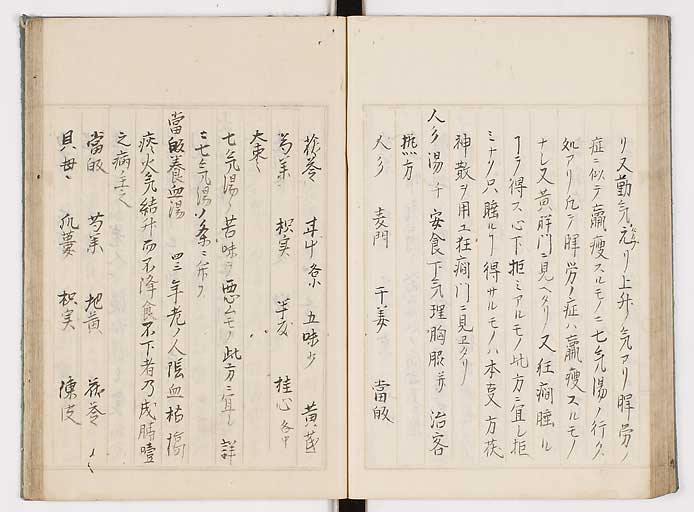 リ又動気元ヨリ上升ノ気アリ
症ニ似テ羸痩スルモノニ七気湯ノ行ク
処アリ凡テ労ノ症ハ羸痩スルモノ
ナレ又黄胖門ニ見ヘタリ又狂癇睡ル
ヿヲ得ス心下拒ミアルモノ此方ニ宜し拒
ミナク只睡ルヿ得サルモノハ本方茯
神散ヲ用ユ狂癇門ニ見ヱタリ
人参湯 千 安食下気理胸脇并治客
熱方
人参 麦門 干姜 當皈
茯苓 甘草炙 五味子 黄芪
芍薬 枳実 半夏 桂心各中
大棗
七気湯ノ苦味ヲ悪ムモノ此方ニ宜し詳
ニ七気湯ノ条ニ弁ス
當皈養血湯 年老ノ人陰血枯槁
痰火気結升而不降食不下者乃成膈噎
之病主之
當皈 芍薬 地黄 茯苓
貝母 瓜蔞 枳実 陳皮